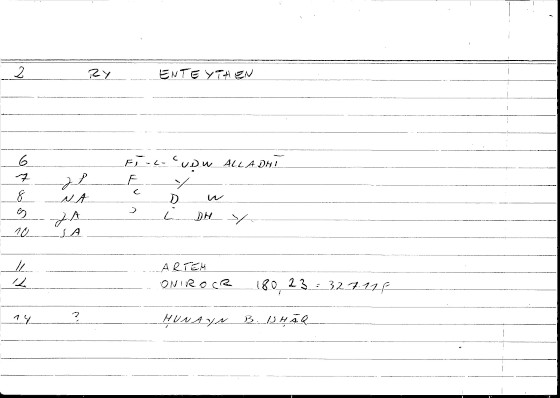 2 RY ENTEYTHEN
6 FĪ-L-ʿUḌW ALLADHĪ
7 JP F Y
8 NA ʿ Ḍ W
9 JA ʾ L DH Y
10 SA
11 ARTEM
12 ONIROCR 180,23 = 327,11F
14 ? ḤUNAYN B. ISḤĀQ